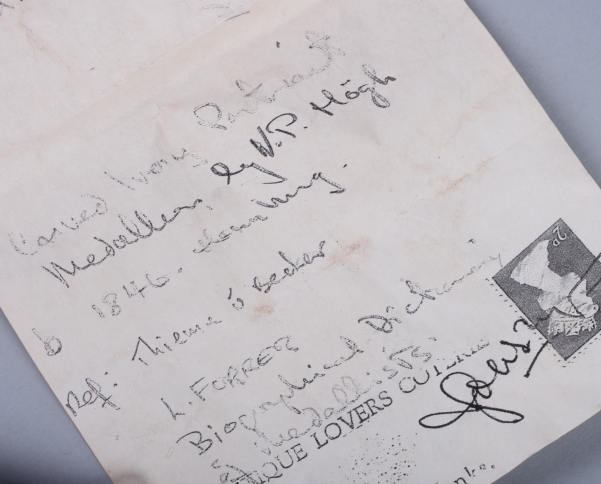 Carved Ivory Portrait
Medallion by V.P. Högh
b 1846. Hamburg.
Ref: Thieme & Becker
L. FORRER
Biographical Dictionary
of Medallists.
IQUE LOVERS
2P